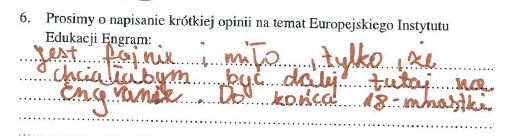 6. Prosimy o napisanie krótkiej opinii na temat Europejskiego Instytutu
Edukacji Engram:
Jest fajnie i miło, tylko, że
chciałabym być dalej tutaj na
Engramie. Do końca 18-nastki.